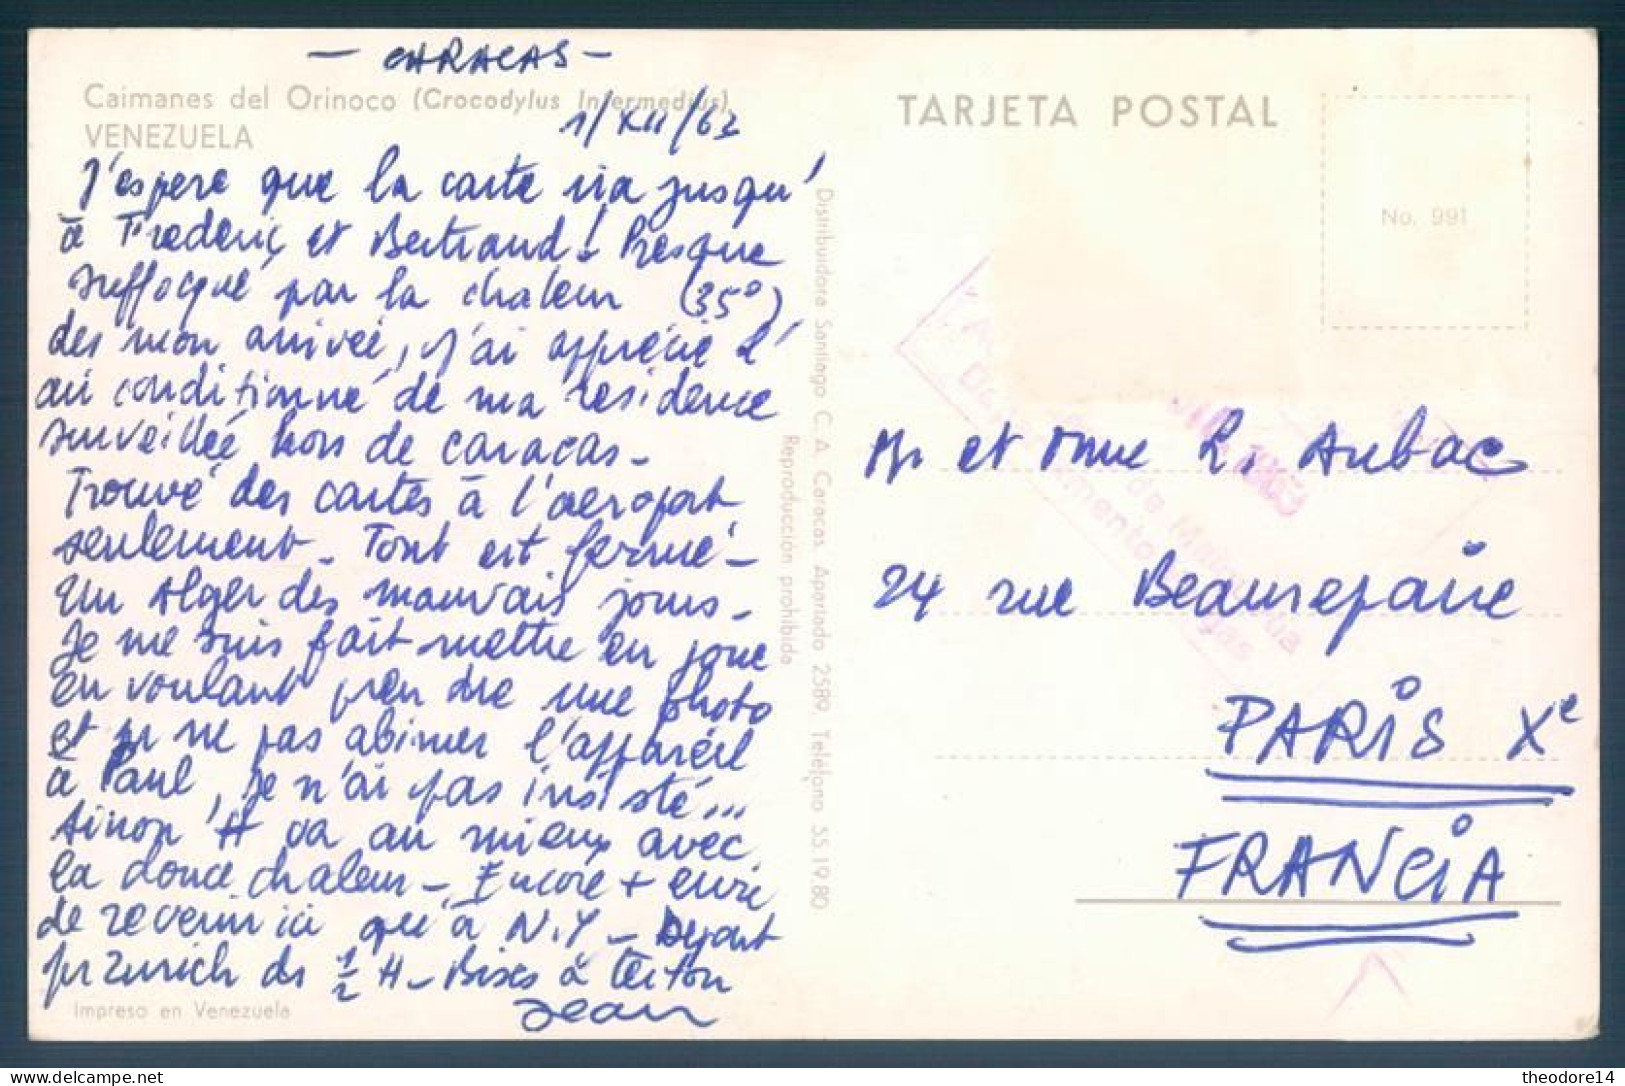 — CARACAS —
Caimanes del Orinoco (Crocodylus Intermedius)
VENEZUELA
1/XII/63
J'espere que la carte ira jusqu'
à Frederic et Bertrand! Presque
suffoqué par la chaleur (35°)
des mon arrivée, j'ai apprécié l'
air conditionné de ma residence
surveillée hors de caracas -
Trouvé des cartes à l'aeroport
seulement - Tout est fermé -
Un Alger des mauvais jours -
Je me suis fait mettre en joue
en voulant prendre une photo
et pr ne pas abimer l'appareil
à Paul, je n'ai pas insisté...
Sinon H va au mieux avec
la douce chaleur - Encore + envie
de revenir ici qu'à N.Y - Départ
pr Zurich ds 1/2 H - Bises à
Jean
Impreso en Venezuela
Distribuidora Santiago C. A. Caracas. Apartado 2589. Teléfono 55.19.80
Reproducción prohibida
TARJETA POSTAL
No. 991
Mr et Mme L. Aubac
24 rue Beaurepaire
PARIS Xe
FRANCIA
theodore14